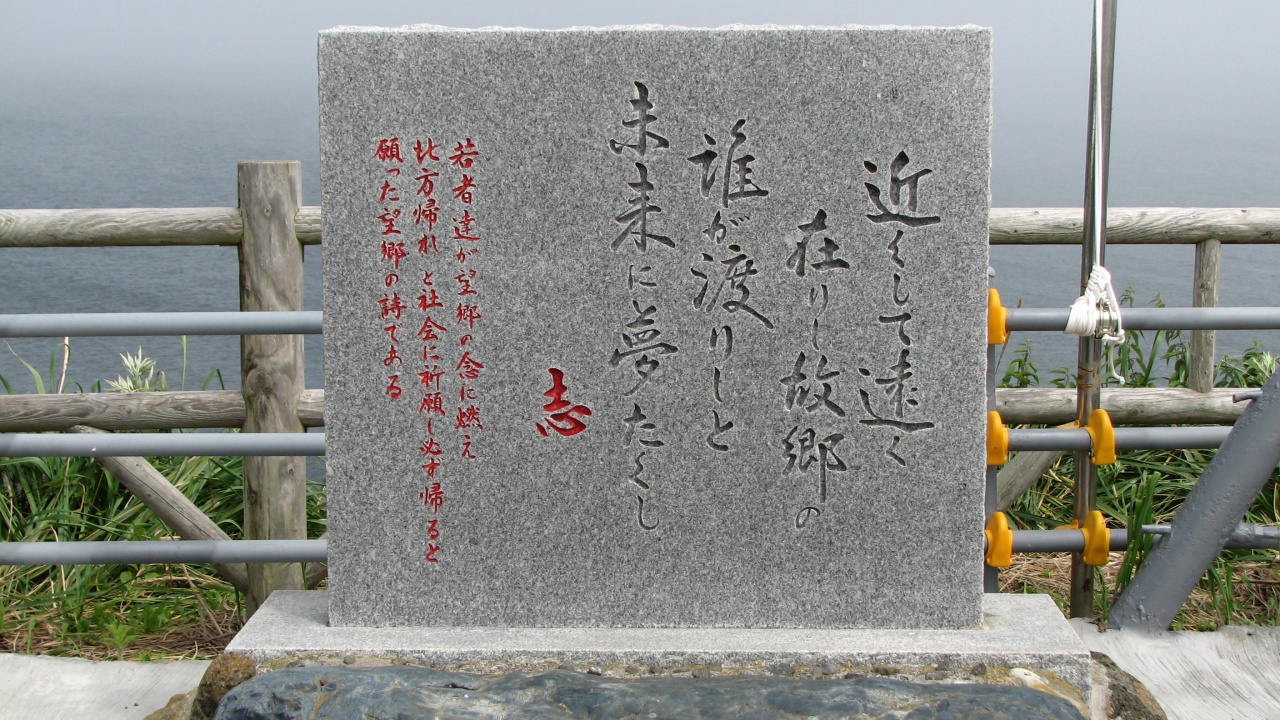 近くして遠く
在りし故郷の
誰が渡りしと
未来に夢たくし
志
若者達が望郷の念に燃え
北方帰れと社会に祈願し必す帰ると
願った望郷の詩である